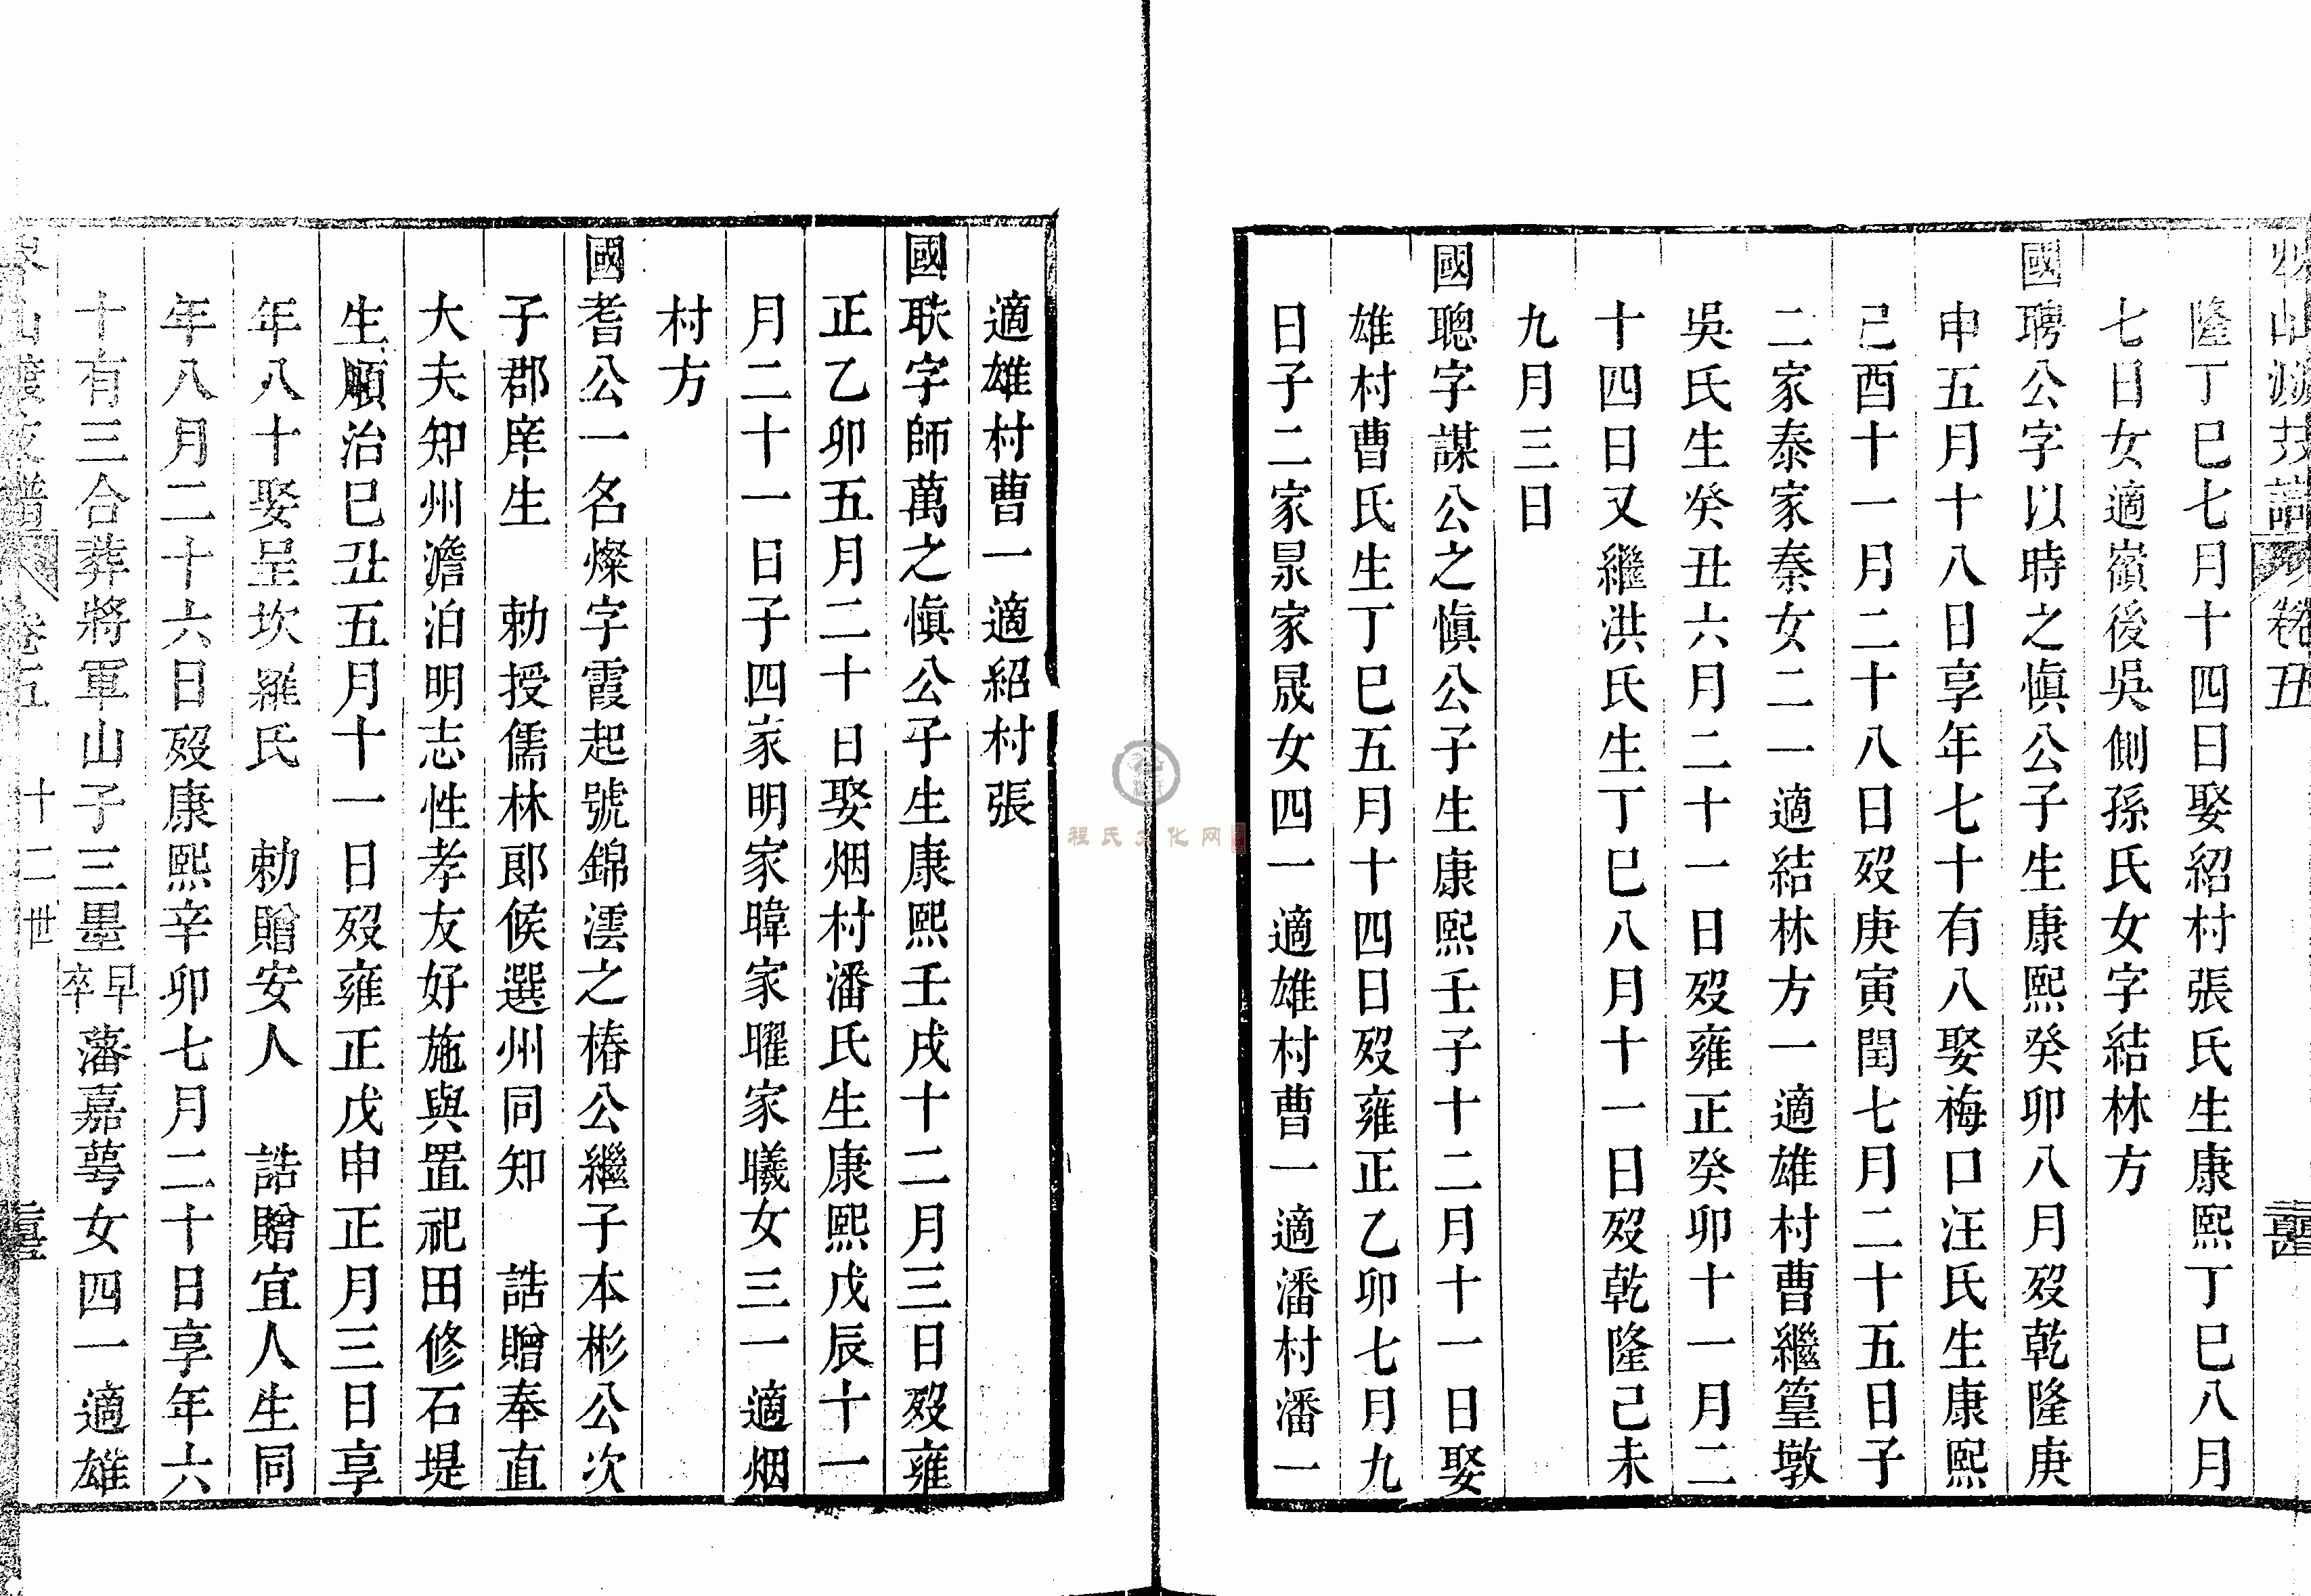 隆丁巳七月十四日娶紹村張氏生康熙丁巳八月
七日女適嶺後吳側孫氏女字結林方
國聘公字以時之慎公子生康熙癸卯八月歿乾隆庚
申五月十八日享年七十有八娶梅口汪氏生康熙
己酉十一月二十八日歿庚寅閏七月二十五日子
二家泰家秦女二一適結林方一適雄村曹繼篁墩
吳氏生癸丑六月二十一日歿雍正癸卯十一月二
十四日又繼洪氏生丁巳八月十一日歿乾隆己未
九月三日
國聰字謀公之慎公子生康熙壬子十二月十一日娶
雄村曹氏生丁巳五月十四日歿雍正乙卯七月九
日子二家杲家晟女四一適雄村曹一適潘村潘一
適雄村曹一適紹村張
國聫字師萬之慎公子生康熙壬戌十二月三日歿雍
正乙卯五月二十日娶烟村潘氏生康熙戊辰十一
月二十一日子四家明家暐家曜家曦女三一適烟
村方
國耆公一名燦字霞起號錦澐之椿公繼子本彬公次
子郡庠生 勅授儒林郎候選州同知 誥贈奉直
大夫知州澹泊明志性孝友好施與置祀田修石堤
生順治己丑五月十一日歿雍正戊申正月三日享
年八十娶呈坎羅氏 勅贈安人 誥贈宜人生同
年八月二十六日歿康熙辛卯七月二十日享年六
十有三合葬將軍山子三墨早卒藩嘉萼女四一適雄
支譜 卷五 十二世
程氏文化网